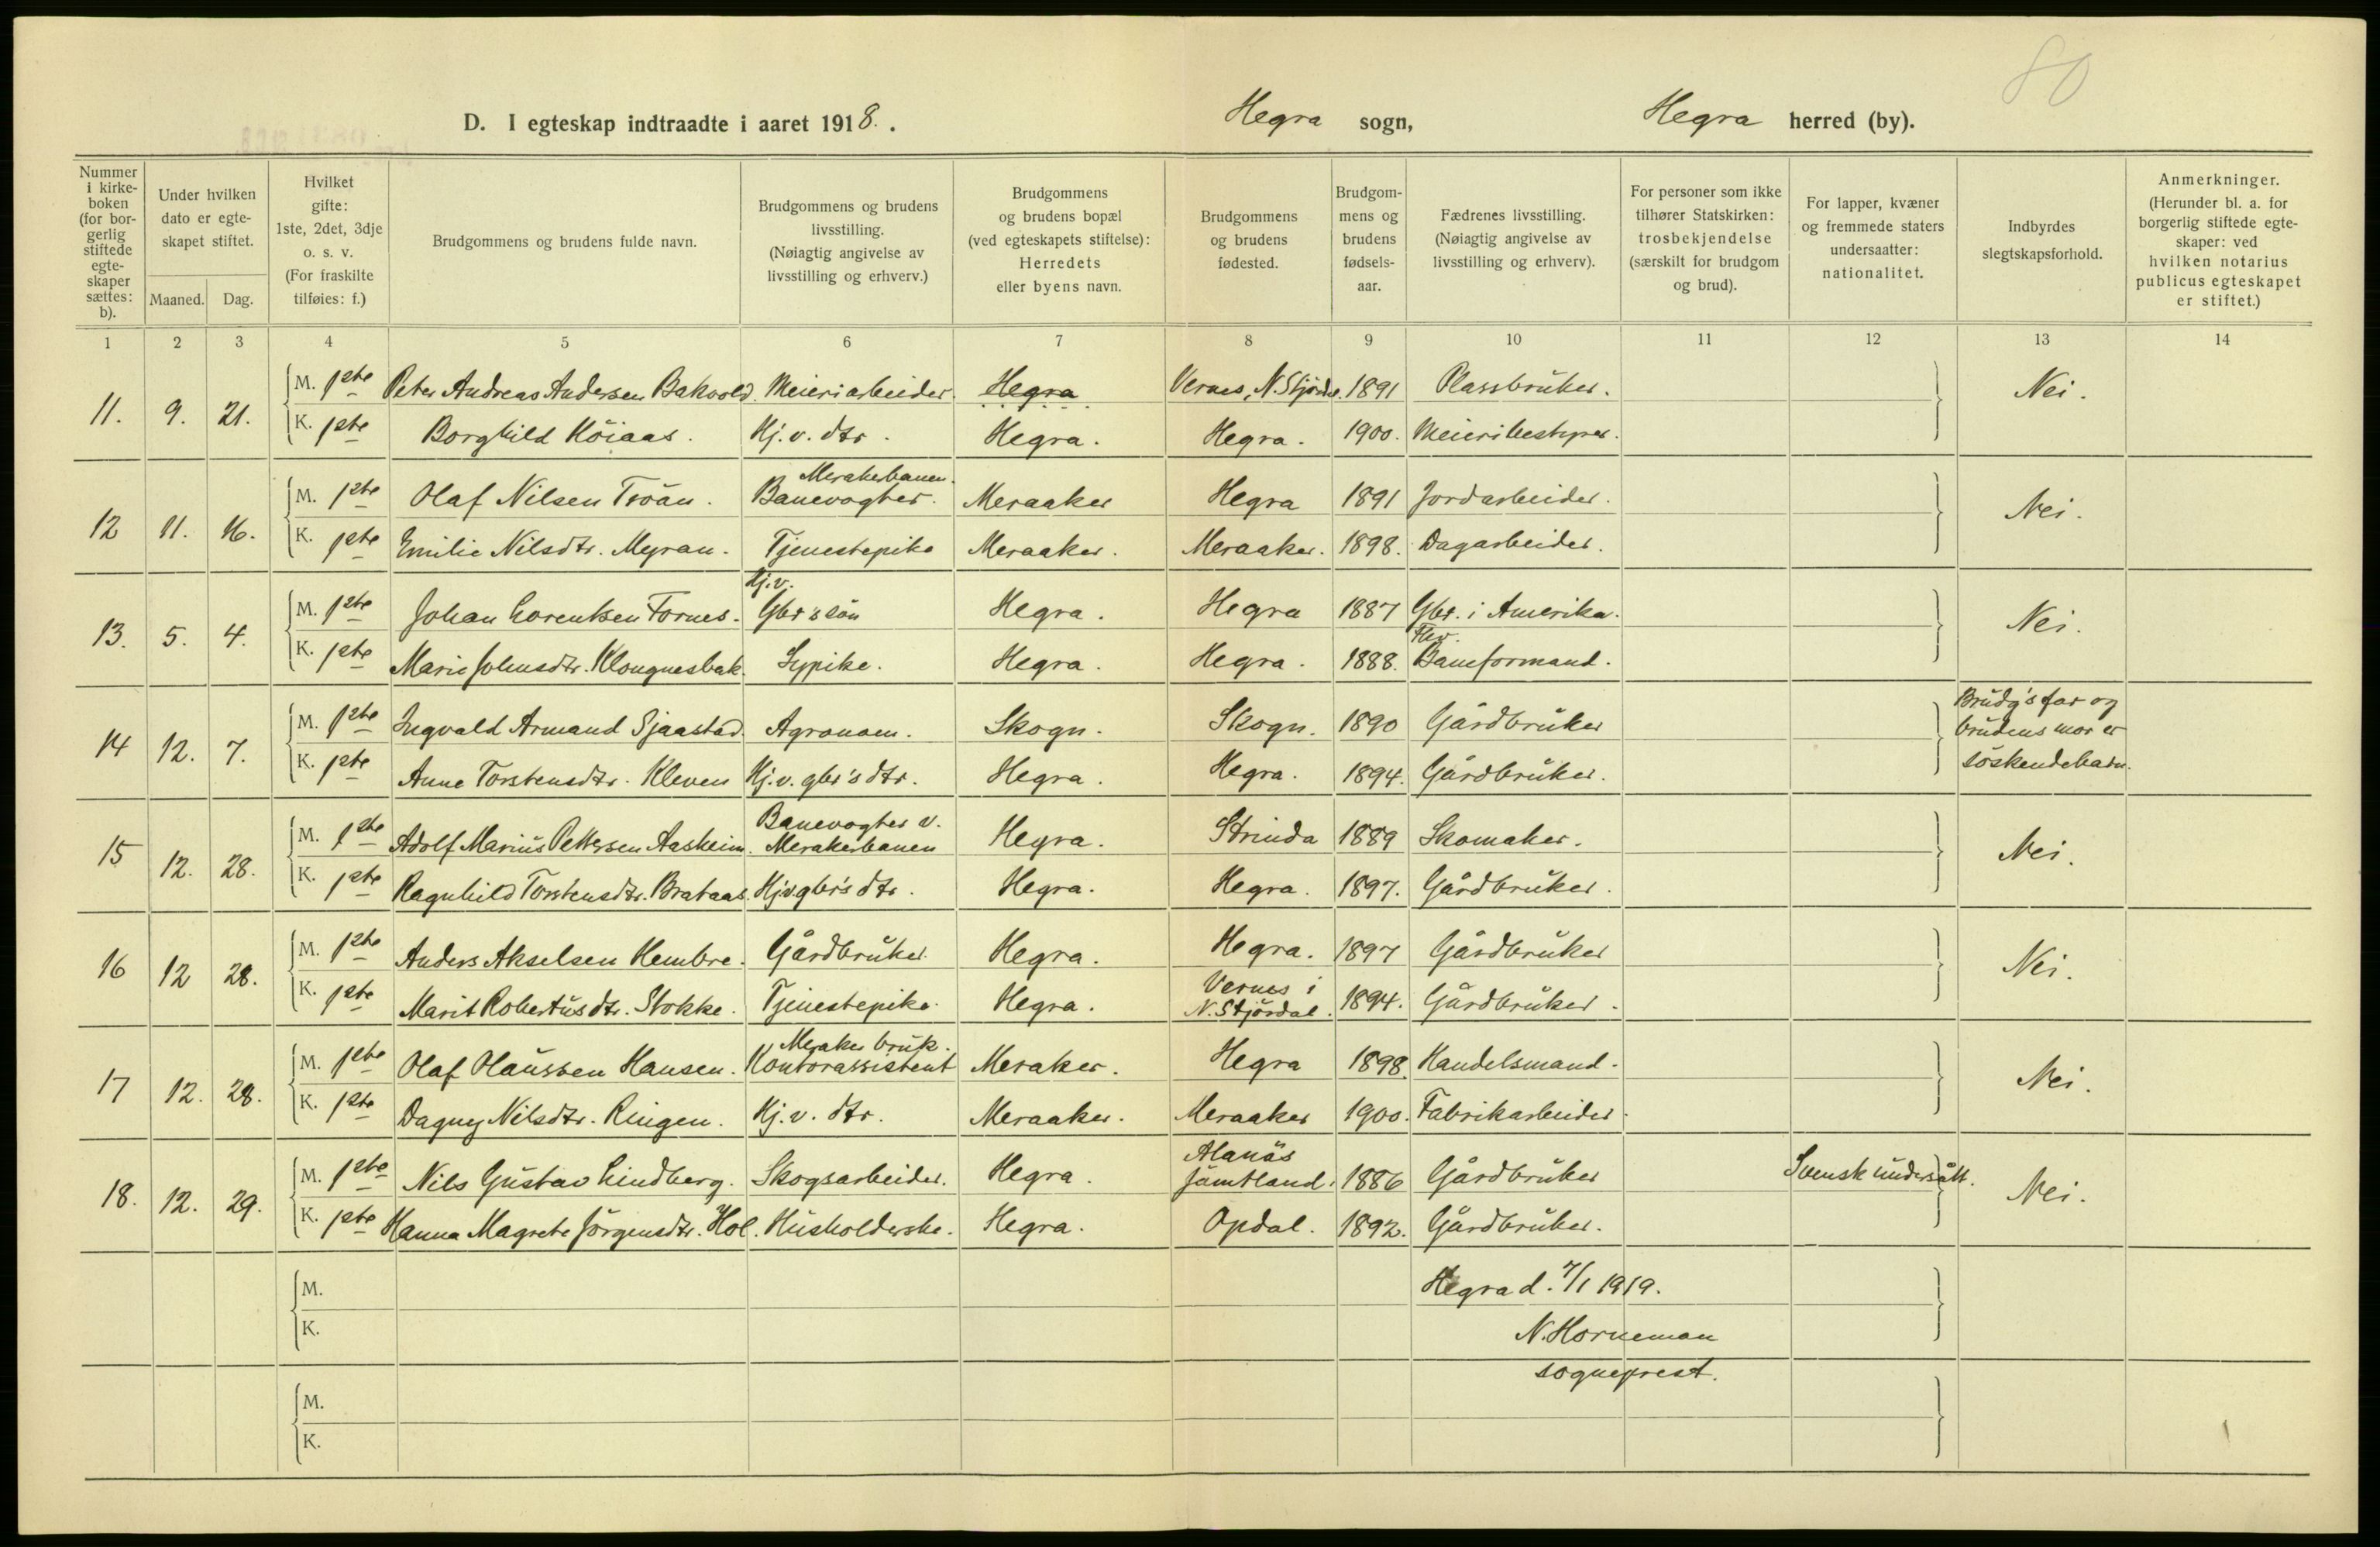 80
D. I egteskap indtraadte i aaret 1918. . Hegra sogn, Hegra herred (by).
Nummer i kirke-boken (for bor-gerlig stiftede egte-skaper sættes: b).
Under hvilken dato er egte-skapet stiftet.
Maaned. Dag.
Hvilket gifte: 1ste, 2det, 3dje o. s. v. (For fraskilte tilføies: f.)
Brudgommens og brudens fulde navn.
Brudgommens og brudens livsstilling. (Nøiagtig angivelse av livsstilling og erhverv.)
Brudgommens og brudens bopæl (ved egteskapets stiftelse): Herredets eller byens navn.
Brudgommens og brudens fødested.
Brudgom-mens og brudens fødsels-aar.
Fædrenes livsstilling. (Nøiagtig angivelse av livsstilling og erhverv).
For personer som ikke tilhører Statskirken: trosbekjendelse (særskilt for brudgom og brud).
For lapper, kvæner og fremmede staters undersaatter: nationalitet.
Indbyrdes slegtskapsforhold.
Anmerkninger. (Herunder bl. a. for borgerlig stiftede egte-skaper: ved hvilken notarius publicus egteskapet er stiftet.)
1 2 3 4 5 6 7 8 9 10 11 12 13 14
11. 9. 21. M. 1ste Peter Andreas Andersen Bakvold. Meieriarbeider. Hegra Vernes, N. Stjørd. 1891 Plassbruker. Nei.
K. 1ste Borghild Höiaas. Hj. v. dtr. Hegra. Hegra. 1900. Meieribestyrer.
12 11. 16. M. 1ste Olaf Nilsen Tröän. Banevogter. Merakerbanen. Meraaker Hegra 1891 Jordarbeider. Nei.
K. 1ste Emilie Nilsdtr. Myran. Tjenestepike Meraaker. Meraaker. 1898. Dagarbeider.
13. 5. 4. M. 1ste Johan Lorentsen Fornes. Hj. v. Gbr's sön Hegra. Hegra 1887 Gbr. i Amerika. Nei.
K. 1ste Marie Johnsdtr. Klougnesbak. Sypike. Hegra. Hegra. 1888. Fhv. Baneformand.
14 12. 7. M. 1ste Ingvald Armand Sjaastad. Agronom. Skogn. Skogn. 1890 Gårdbruker Brudg's far og brudens mor er söskendebarn.
K. 1ste Anne Torstensdtr. Kleven Hj. v. gbr's dtr. Hegra. Hegra. 1894. Gårdbruker.
15 12. 28. M. 1ste Adolf Marius Pettersen Aasheim. Banevogter v. Merakerbanen Hegra. Strinda 1889 Skomaker. Nei.
K. 1ste Ragnhild Torstensdtr. Brataas. Hj.v.gbr's dtr. Hegra. Hegra. 1897. Gårdbruker.
16 12 28. M. 1ste Anders Akselsen Hembre. Gårdbruker. Hegra. Hegra. 1897 Gårdbruker Nei.
K. 1ste Marit Robertusdtr. Stokke. Tjenestepike. Hegra. Vernes i N. Stjördal. 1894. Gårdbruker.
17 12. 28. M. 1ste Olaf Olaussen Hansen. Meraker bruk. Kontorassistent Meraker. Hegra 1898. Handelsmand. Nei.
K. 1ste Dagny Nilsdtr. Ringen. Hj. v. dtr. Meraaker. Meraaker 1900. Fabrikarbeider.
18. 12. 29. M. 1ste Nils Gustav Lindberg. Skogsarbeider. Hegra. Alanäs Jämtland. 1886 Gårdbruker Svensk undersått. Nei.
K. 1ste Hanna Magrete Jörgensdtr. Hol. Husholderske. Hegra. Opdal. 1892. Gårdbruker.
M. Hegra d. 7/1 1919.
K. N. Horneman
sogneprest.
M.
K.